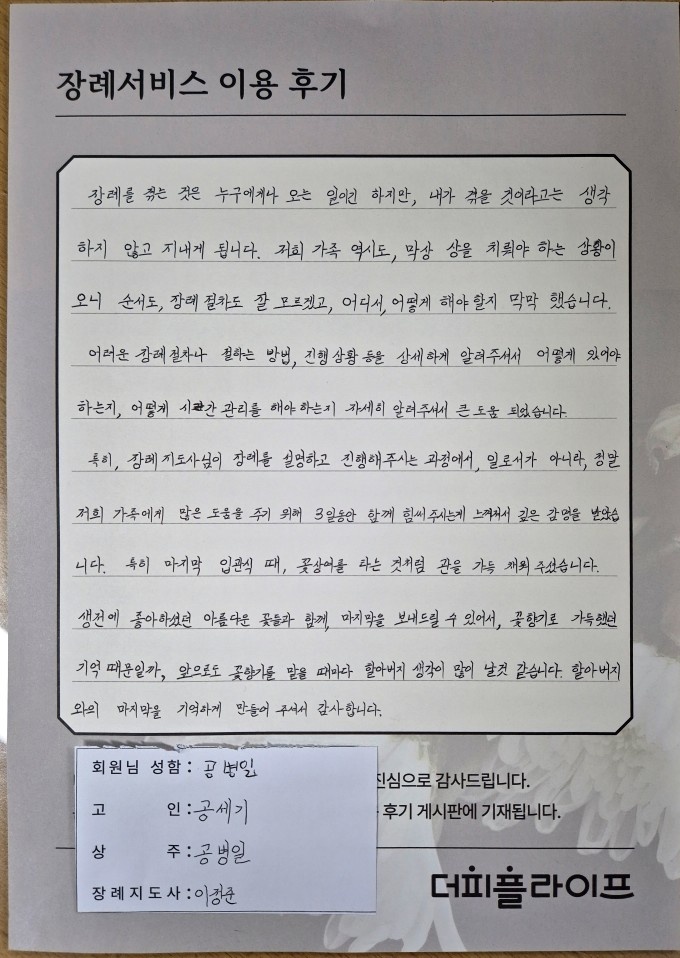 장례서비스 이용 후기
장례를 겪는 것은 누구에게나 오는 일이긴 하지만, 내가 겪을 것이라고는 생각
하지 않고 지내게 됩니다. 저희 가족 역시도, 막상 상을 치뤄야 하는 상황이
오니 순서도, 장례 절차도 잘 모르겠고, 어디서, 어떻게 해야 할지 막막 했습니다.
어려운 장례절차나 절하는 방법, 진행상황 등을 상세하게 알려주셔서 어떻게 있어야
하는지, 어떻게 시간 관리를 해야 하는지 자세히 알려주셔서 큰 도움 되었습니다.
특히, 장례지도사님이 장례를 설명하고 진행해주시는 과정에서, 일로서가 아니라, 정말
저희 가족에게 많은 도움을 주기 위해 3일동안 함께 힘써주시는게 느껴져서 깊은 감명을 받았습
니다. 특히 마지막 입관식 때, 꽃상여를 타는 것처럼 관을 가득 채워 주셨습니다.
생전에 좋아하셨던 아름다운 꽃들과 함께, 마지막을 보내드릴 수 있어서, 꽃향기로 가득했던
기억 때문일까, 앞으로도 꽃향기를 맡을 때마다 할아버지 생각이 많이 날것 같습니다. 할아버지
와의 마지막을 기억하게 만들어 주셔서 감사합니다.
회원님 성함 : 공병일
진심으로 감사드립니다.
고 인 : 공세기
후기 게시판에 기재됩니다.
상 주 : 공병일
장례지도사 : 이정준
더피플라이프